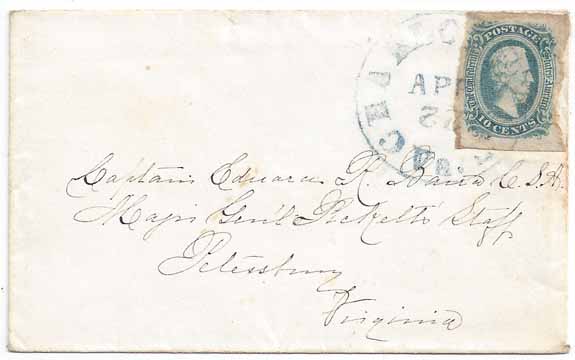 POSTAGE
The Confederate States of America
10 CENTS
RICHM
AP
Va.
Captain Edward R. C. S. A.
Majr Gen'l Pickett's Staff
Petersburg
Virginia